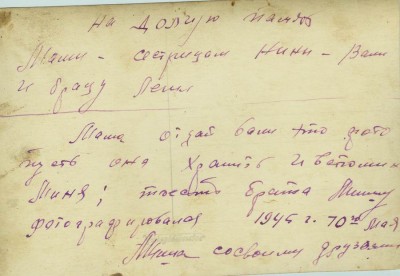 На долгую память
Маме - сестрицам Нини - Вали
и брату Лени
Мама отдай Вали это фото
пусть она хранить и вспомин
Миня; тоесть брата Мишу
фотографировался 1945 г. 10го Мая
Миша сосвоими друзьями